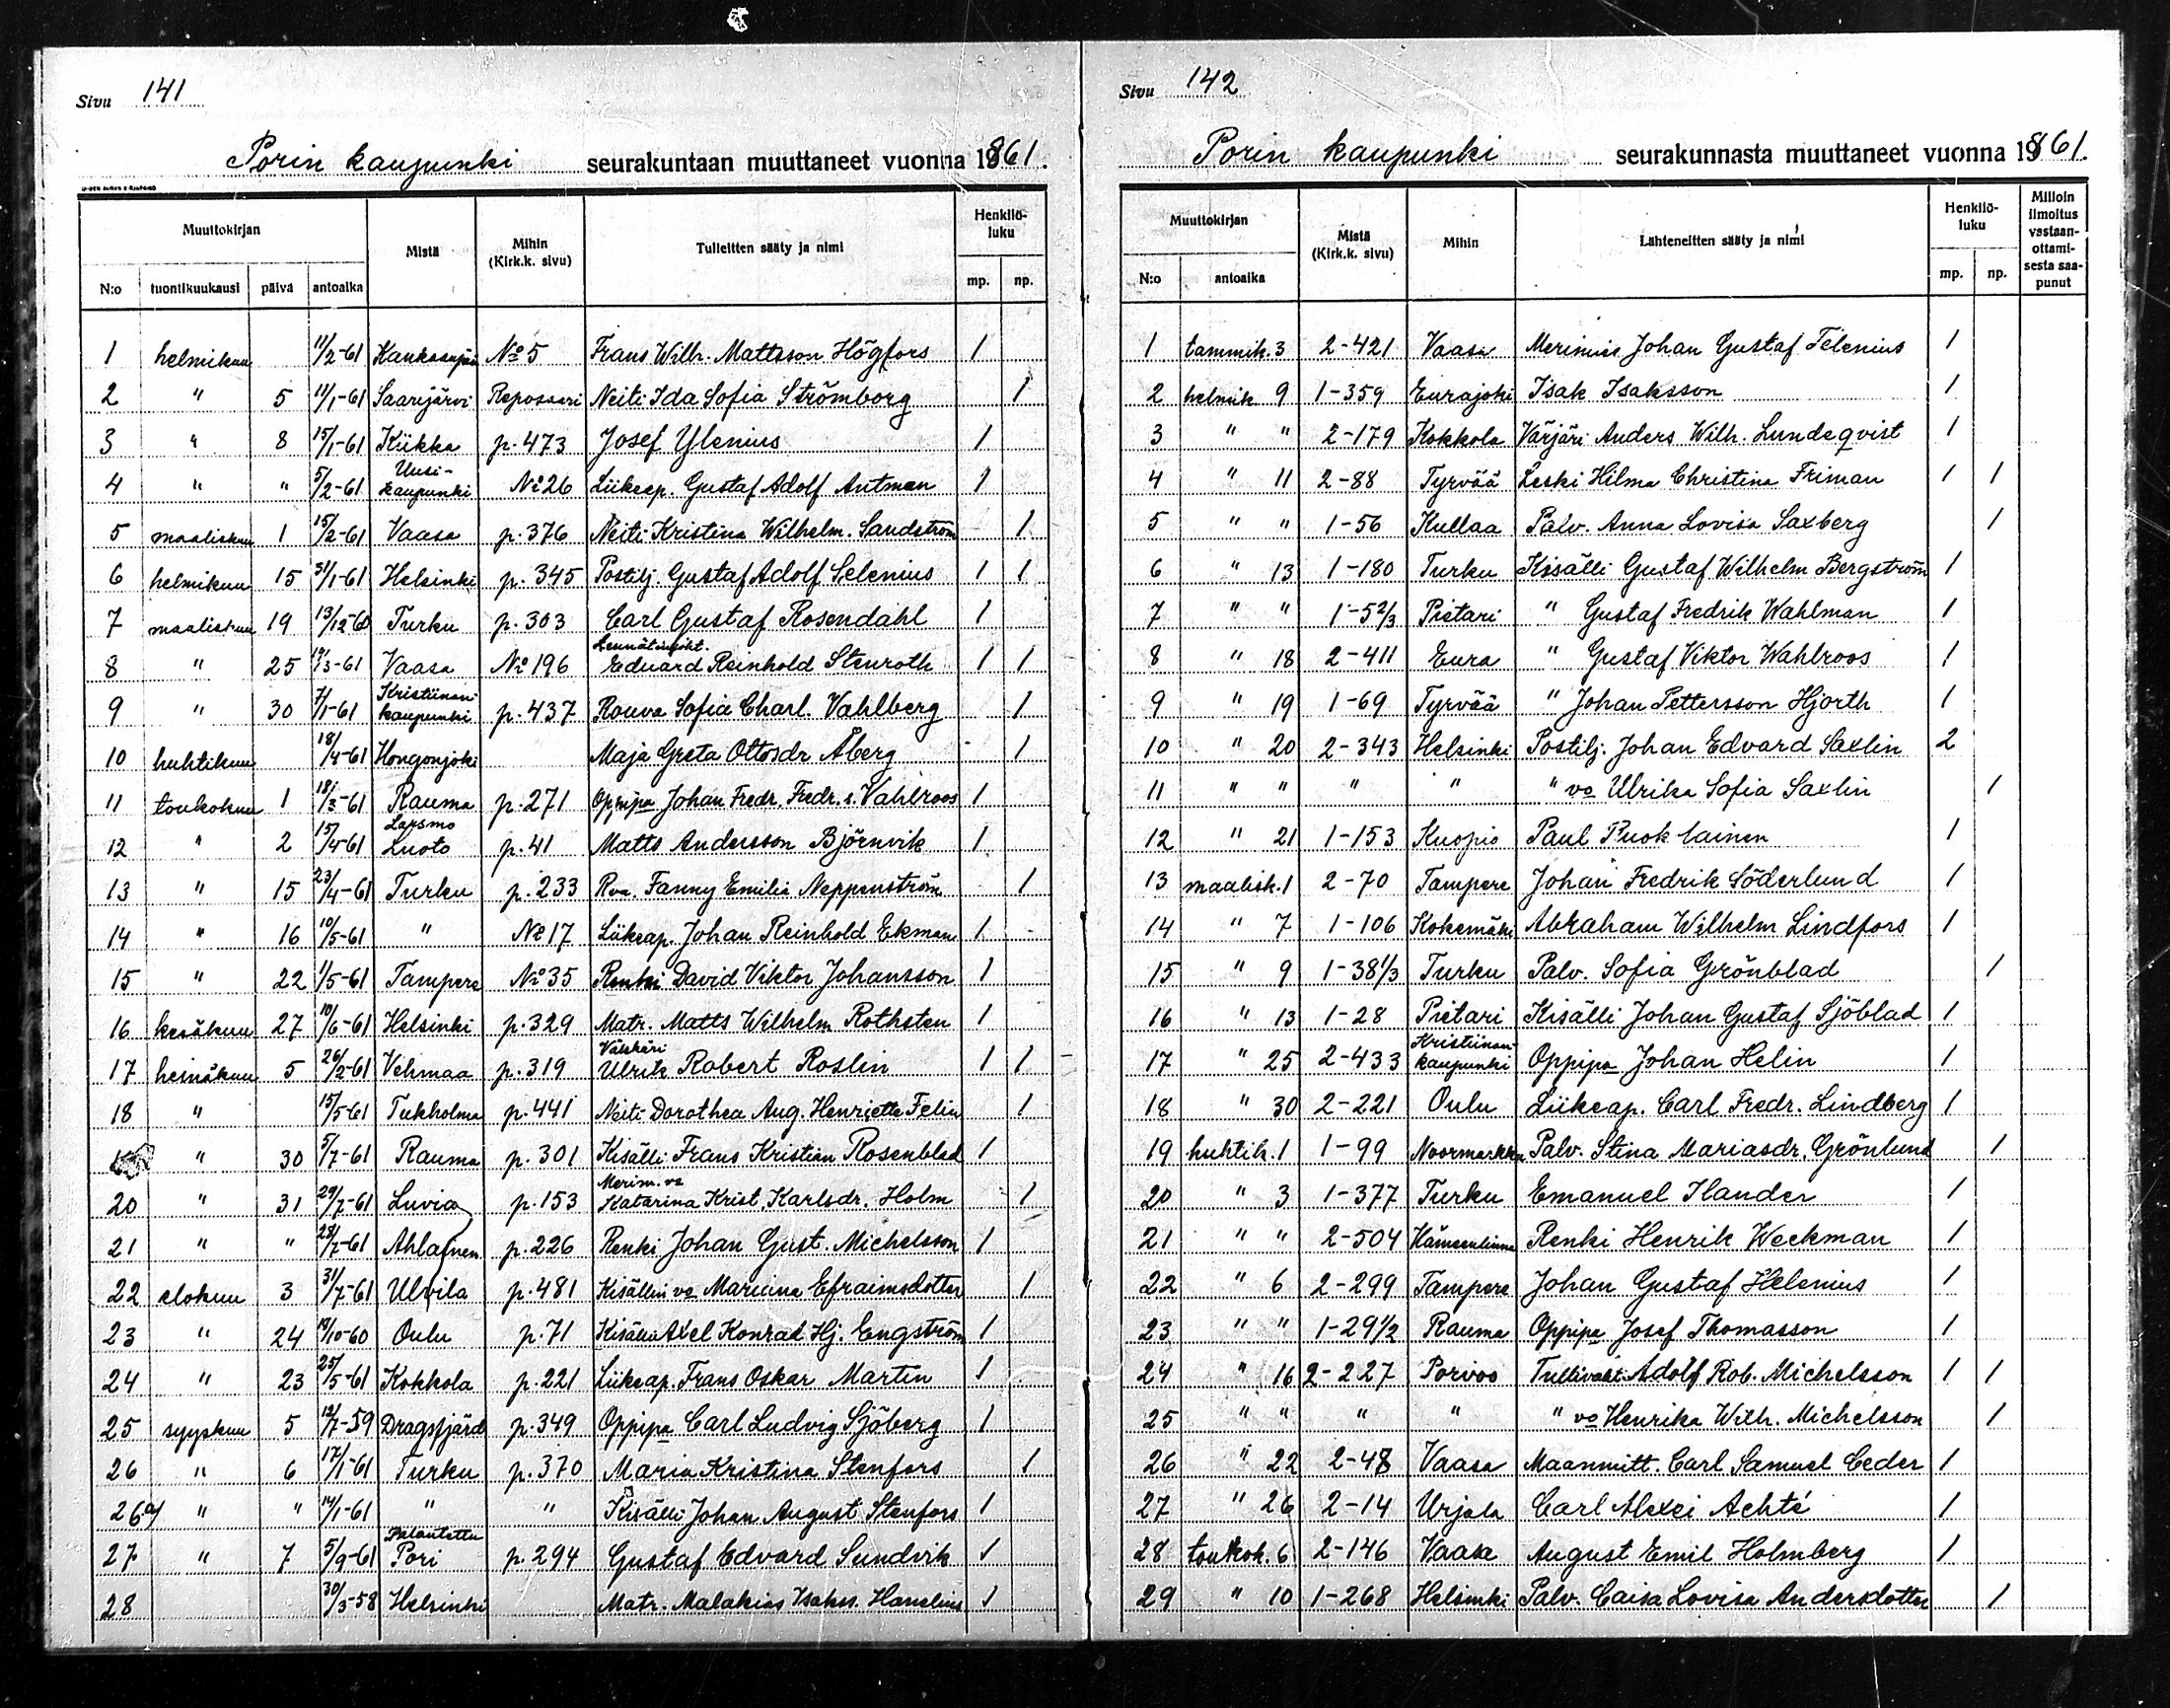 Sivu 141
Porin kaupunki seurakuntaan muuttaneet vuonna 1861.
Muuttokirjan Mistä Mihin (Kirk.k. sivu) Tulleitten sääty ja nimi Henkilö-luku
N:o tuontikuukausi päivä antoaika mp. np.
1 helmikuu 11/2-61 Kankaanpää No 5 Frans Wilh. Mattsson Högfors 1
2 " 5 11/1-61 Saarijärvi Reposaari Neiti Ida Sofia Strömborg 1
3 " 8 15/1-61 Kiikka p. 473 Josef Ylenius 1
4 " " 5/2-61 Uusi-kaupunki No 26 Liikeap. Gustaf Adolf Antman 1
5 maaliskuu 1 15/2-61 Vaasa p. 376 Neiti Kristina Wilhelm. Sandström 1
6 helmikuu 15 31/1-61 Helsinki p. 345 Postilj. Gustaf Adolf Selenius 1 1
7 maaliskuu 19 13/12-60 Turku p. 303 Carl Gustaf Rosendahl 1
8 " 25 /3-61 Vaasa No 196 Eduard Reinhold Stenroth 1 1
9 " 30 7/1-61 Kristiinan-kaupunki p. 437 Rouva Sofia Charl. Vahlberg 1
10 huhtikuu 18/4-61 Hongonjoki Maja Greta Ottosdr Åberg 1
11 toukokuu 1 18/3-61 Rauma p. 271 Oppipa Johan Fredr. Fredr. s. Vahlroos 1
12 " 2 15/4-61 Larsmo Luoto p. 41 Matts Andersson Björnvik 1
13 " 15 23/4-61 Turku p. 233 Rva. Fanny Emilia Neppenström 1
14 " 16 10/5-61 " No 17 Liikeap. Johan Reinhold Ekman 1
15 " 22 1/5-61 Tampere No 35 Renki David Viktor Johansson 1
16 kesäkuu 27 10/6-61 Helsinki p. 329 Matr. Matts Wilhelm Rothsten 1
17 heinäkuu 5 26/2-61 Vehmaa p. 319 Välskäri Ulrik Robert Roslin 1 1
18 " 15/5-61 Tukholma p. 441 Neiti Dorothea Aug. Henriette Felin 1
" 30 5/7-61 Rauma p. 301 Kisälli Frans Kristian Rosenblad 1
20 " 31 29/7-61 Luvia p. 153 Merim. va Katarina Krist. Karlsdr. Holm 1
21 " " 28/7-61 Ahlainen p. 226 Renki Johan Gust. Michelsson 1
22 elokuu 3 31/7-61 Ulvila p. 481 Kisällin va Mariana Efraimsdotter 1
23 " 24 19/10-60 Oulu p. 71 Kisälli Axel Konrad Hj. Engström 1
24 " 23 25/5-61 Kokkola p. 221 Liikeap. Frans Oskar Martin 1
25 syyskuu 5 12/7-59 Dragsfjärd p. 349 Oppipa Carl Ludvig Sjöberg 1
26 " 6 17/1-61 Turku p. 370 Maria Kristina Stenfors 1
26a/ " " 14/1-61 " " Kisälli Johan August Stenfors 1
27 " 7 5/9-61 Palautettu Pori p. 294 Gustaf Edvard Sundvik 1
28 30/3-58 Helsinki Matr. Malakias Isakss. Hanelius 1
Sivu 142
Porin kaupunki seurakunnasta muuttaneet vuonna 1861.
Muuttokirjan Mistä (Kirk.k. sivu) Mihin Lähteneitten sääty ja nimi Henkilö-luku Milloin ilmoitus vastaan-ottami-sesta saa-punut
N:o antoaika mp. np.
1 tammik. 3 2-421 Vaasa Merimies Johan Gustaf Telenius 1
2 helmik 9 1-359 Eurajoki Isak Isaksson 1
3 " " 2-179 Kokkola Värjäri Anders Wilh. Lundeqvist 1
4 " 11 2-88 Tyrvää Leski Hilma Christina Friman 1 1
5 " " 1-56 Kullaa Palv. Anna Lovisa Saxberg 1
6 " 13 1-180 Turku Kisälli Gustaf Wilhelm Bergström 1
7 " " 1-52/3 Pietari " Gustaf Fredrik Wahlman 1
8 " 18 2-411 Eura " Gustaf Viktor Wahlroos 1
9 " 19 1-69 Tyrvää " Johan Pettersson Hjorth 1
10 " 20 2-343 Helsinki Postilj. Johan Edvard Saxlin 2
11 " " " " " va Ulrika Sofia Saxlin 1
12 " 21 1-153 Kuopio Paul Ruokolainen 1
13 maalisk. 1 2-70 Tampere Johan Fredrik Söderlund 1
14 " 7 1-106 Kokemäki Abraham Wilhelm Lindfors 1
15 " 9 1-381/3 Turku Palv. Sofia Grönblad 1
16 " 13 1-28 Pietari Kisälli Johan Gustaf Sjöblad 1
17 " 25 2-433 Kristiinan-kaupunki Oppipa Johan Helin 1
18 " 30 2-221 Oulu Liikeap. Carl Fredr. Lindberg 1
19 huhtik. 1 1-99 Noormarkku Palv. Stina Mariasdr. Grönlund 1
20 " 3 1-377 Turku Emanuel Ilander 1
21 " " 2-504 Hämeenlinna Renki Henrik Weckman 1
22 " 6 2-299 Tampere Johan Gustaf Helenius 1
23 " " 1-291/2 Rauma Oppipa Josef Thomasson 1
24 " 16 2-227 Porvoo Tullivaht. Adolf Rob. Michelsson 1 1
25 " " " " " va Henrika Wilh. Michelsson 1
26 " 22 2-48 Vaasa Maanmitt. Carl Samuel Ceder 1
27 " 26 2-14 Urjala Carl Alexei Achté 1
28 toukok. 6 2-146 Vaasa August Emil Holmberg 1
29 " 10 1-268 Helsinki Palv. Caisa Lovisa Andersdotter 1